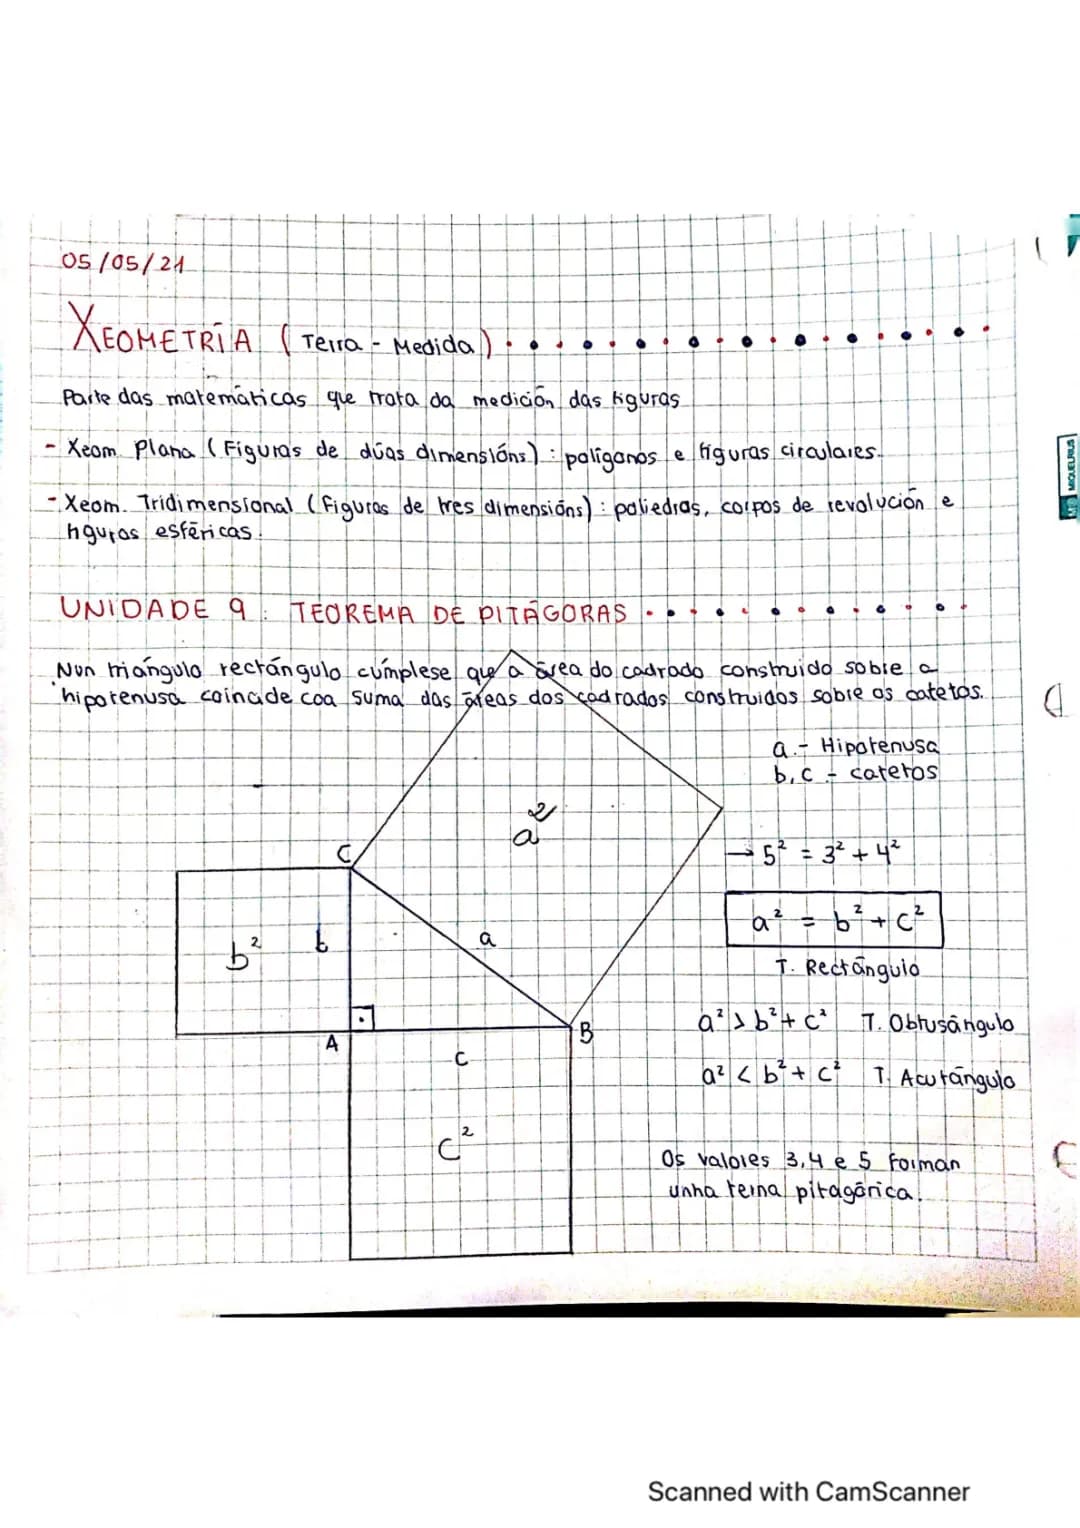 05/05/21
XEOMETRÍA (Terra - Medida)
Parte das matemáticas que trata da medición das figuras
- Xeom. Plana (Figuras de dúas dimensións): polígonos e figuras circulares.
- Xeom. Tridimensional (Figuras de tres dimensións): poliedros, corpos de revolución e
figuras esféricas.
UNIDADE 9: TEOREMA DE PITÁGORAS
Nun triángulo rectángulo cúmplese que a área do cadrado construido sobre a
hipotenusa coincide coa suma das áreas dos cadrados construidos sobre os catetos.
a.- Hipotenusa
b,c - catetos
a²
C
→ 5² = 3² + 4²
b²
b
a
a² = b² + c²
T. Rectángulo
A
B
a² > b² + c² T. Obtusángulo
c
a² < b² + c² T. Acutángulo
c²
Os valores 3,4 e 5 forman
unha terna pitagórica.
MIQUELRIUS
Scanned with CamScanner